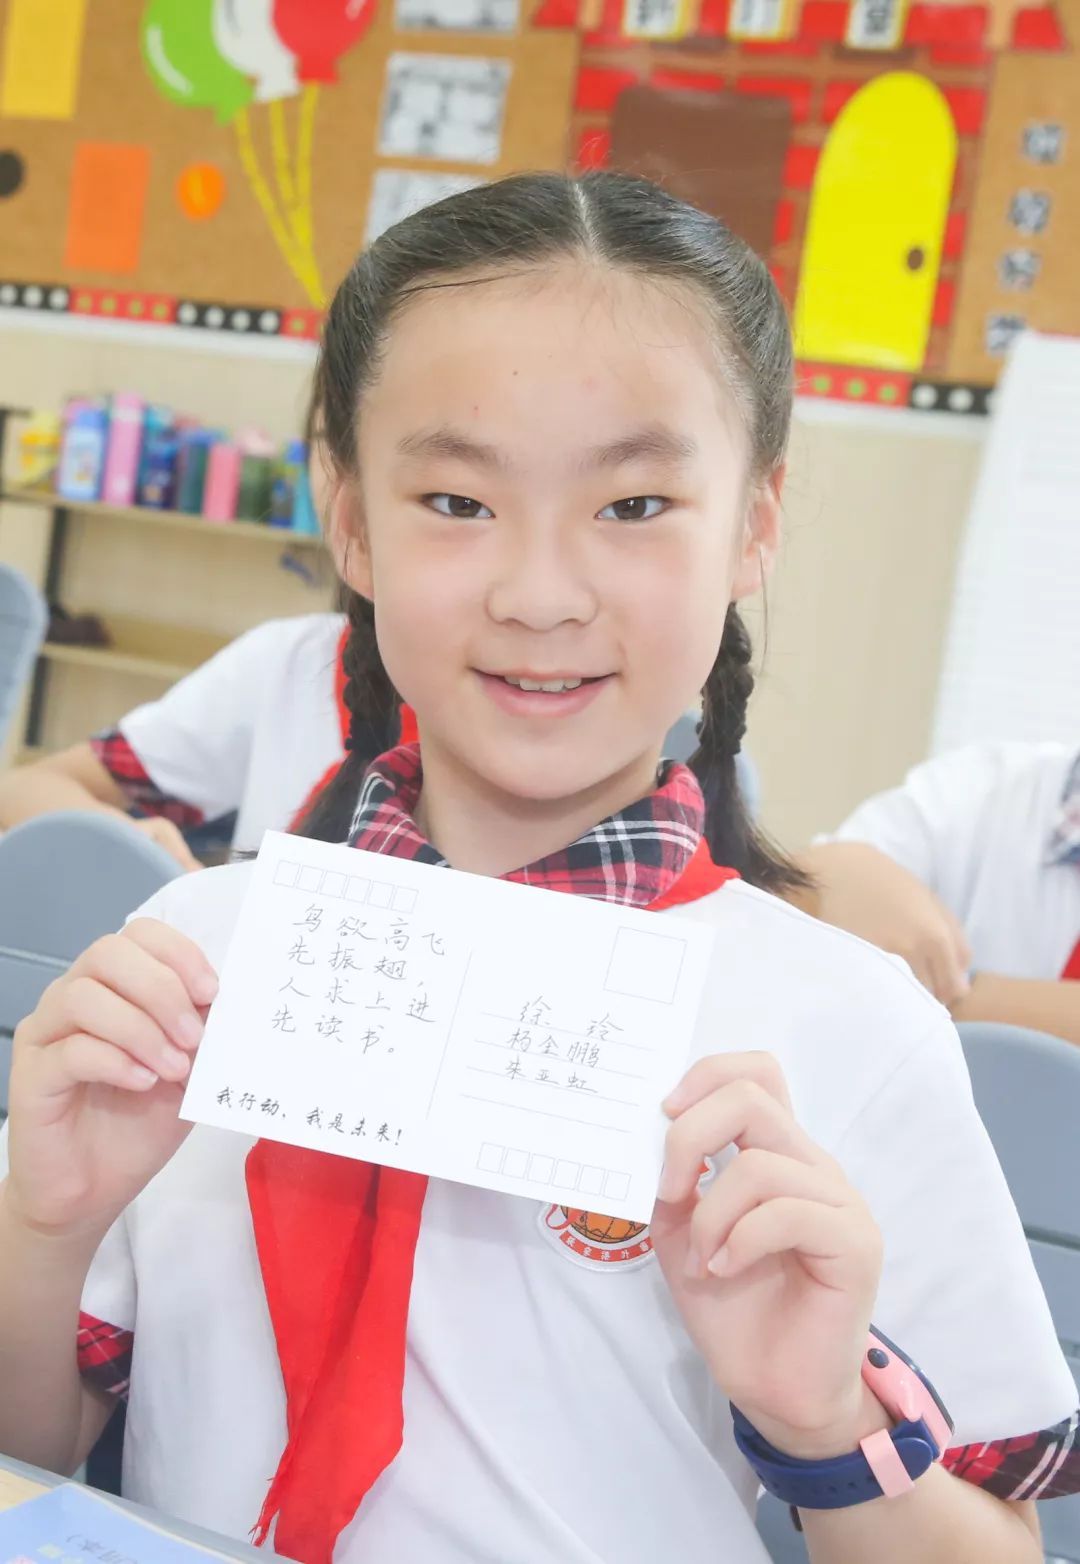 鸟欲高飞
先振翅，
人求上进
先读书。
我行动、我是未来！
徐 玲
杨全鹏
朱亚虹
张家港外